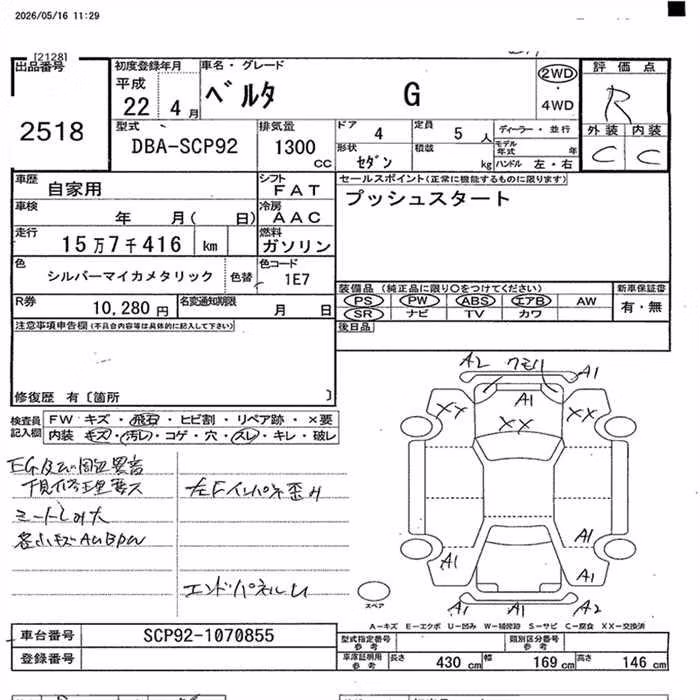 2026/05/16 11:29
[2128]
出品番号
2518
初度登録年月
平成
22 4 月
車名・グレード
ベルタ G
2WD
4WD
評価点
R
外装 内装
C C
型式
DBA-SCP92
排気量
1300 cc
ドア 4
定員 5 人
ディーラー・並行
モデル年式 年
形状 セダン
積載 kg
ハンドル 左・右
車歴
自家用
シフト
FAT
セールスポイント(正常に機能するものに限ります)
プッシュスタート
車検
年 月( 日)
冷房
AAC
走行
15万7千416 km
燃料
ガソリン
色
シルバーマイカメタリック
色替
色コード
1E7
装備品(純正品に限り〇をつけてください)
新車保証書
PS PW ABS エアB AW
有・無
SR ナビ TV カワ
R券
10,280 円
名変通知期限
月 日
後日品
注意事項申告欄(不具合内容等は具体的に記入して下さい)
修復歴 有〔箇所 〕
検査員記入欄
FW キズ・飛石・ヒビ割・リペア跡・×要
内装 キズ・汚レ・コゲ・穴・スレ・キレ・破レ
左Fインパネ歪ミ
エンドパネルU
A2 クモリ A1
A1
XX XX XX
A1
A1 A1
A1 A1 A2
スペア
A-キズ E-エクボ U-凹み W-補修跡 S-サビ C-腐食 XX-交換済
車台番号
SCP92-1070855
登録番号
型式指定番号参考
類別区分番号参考
車庫証明用参考
長さ 430 cm 幅 169 cm 高さ 146 cm